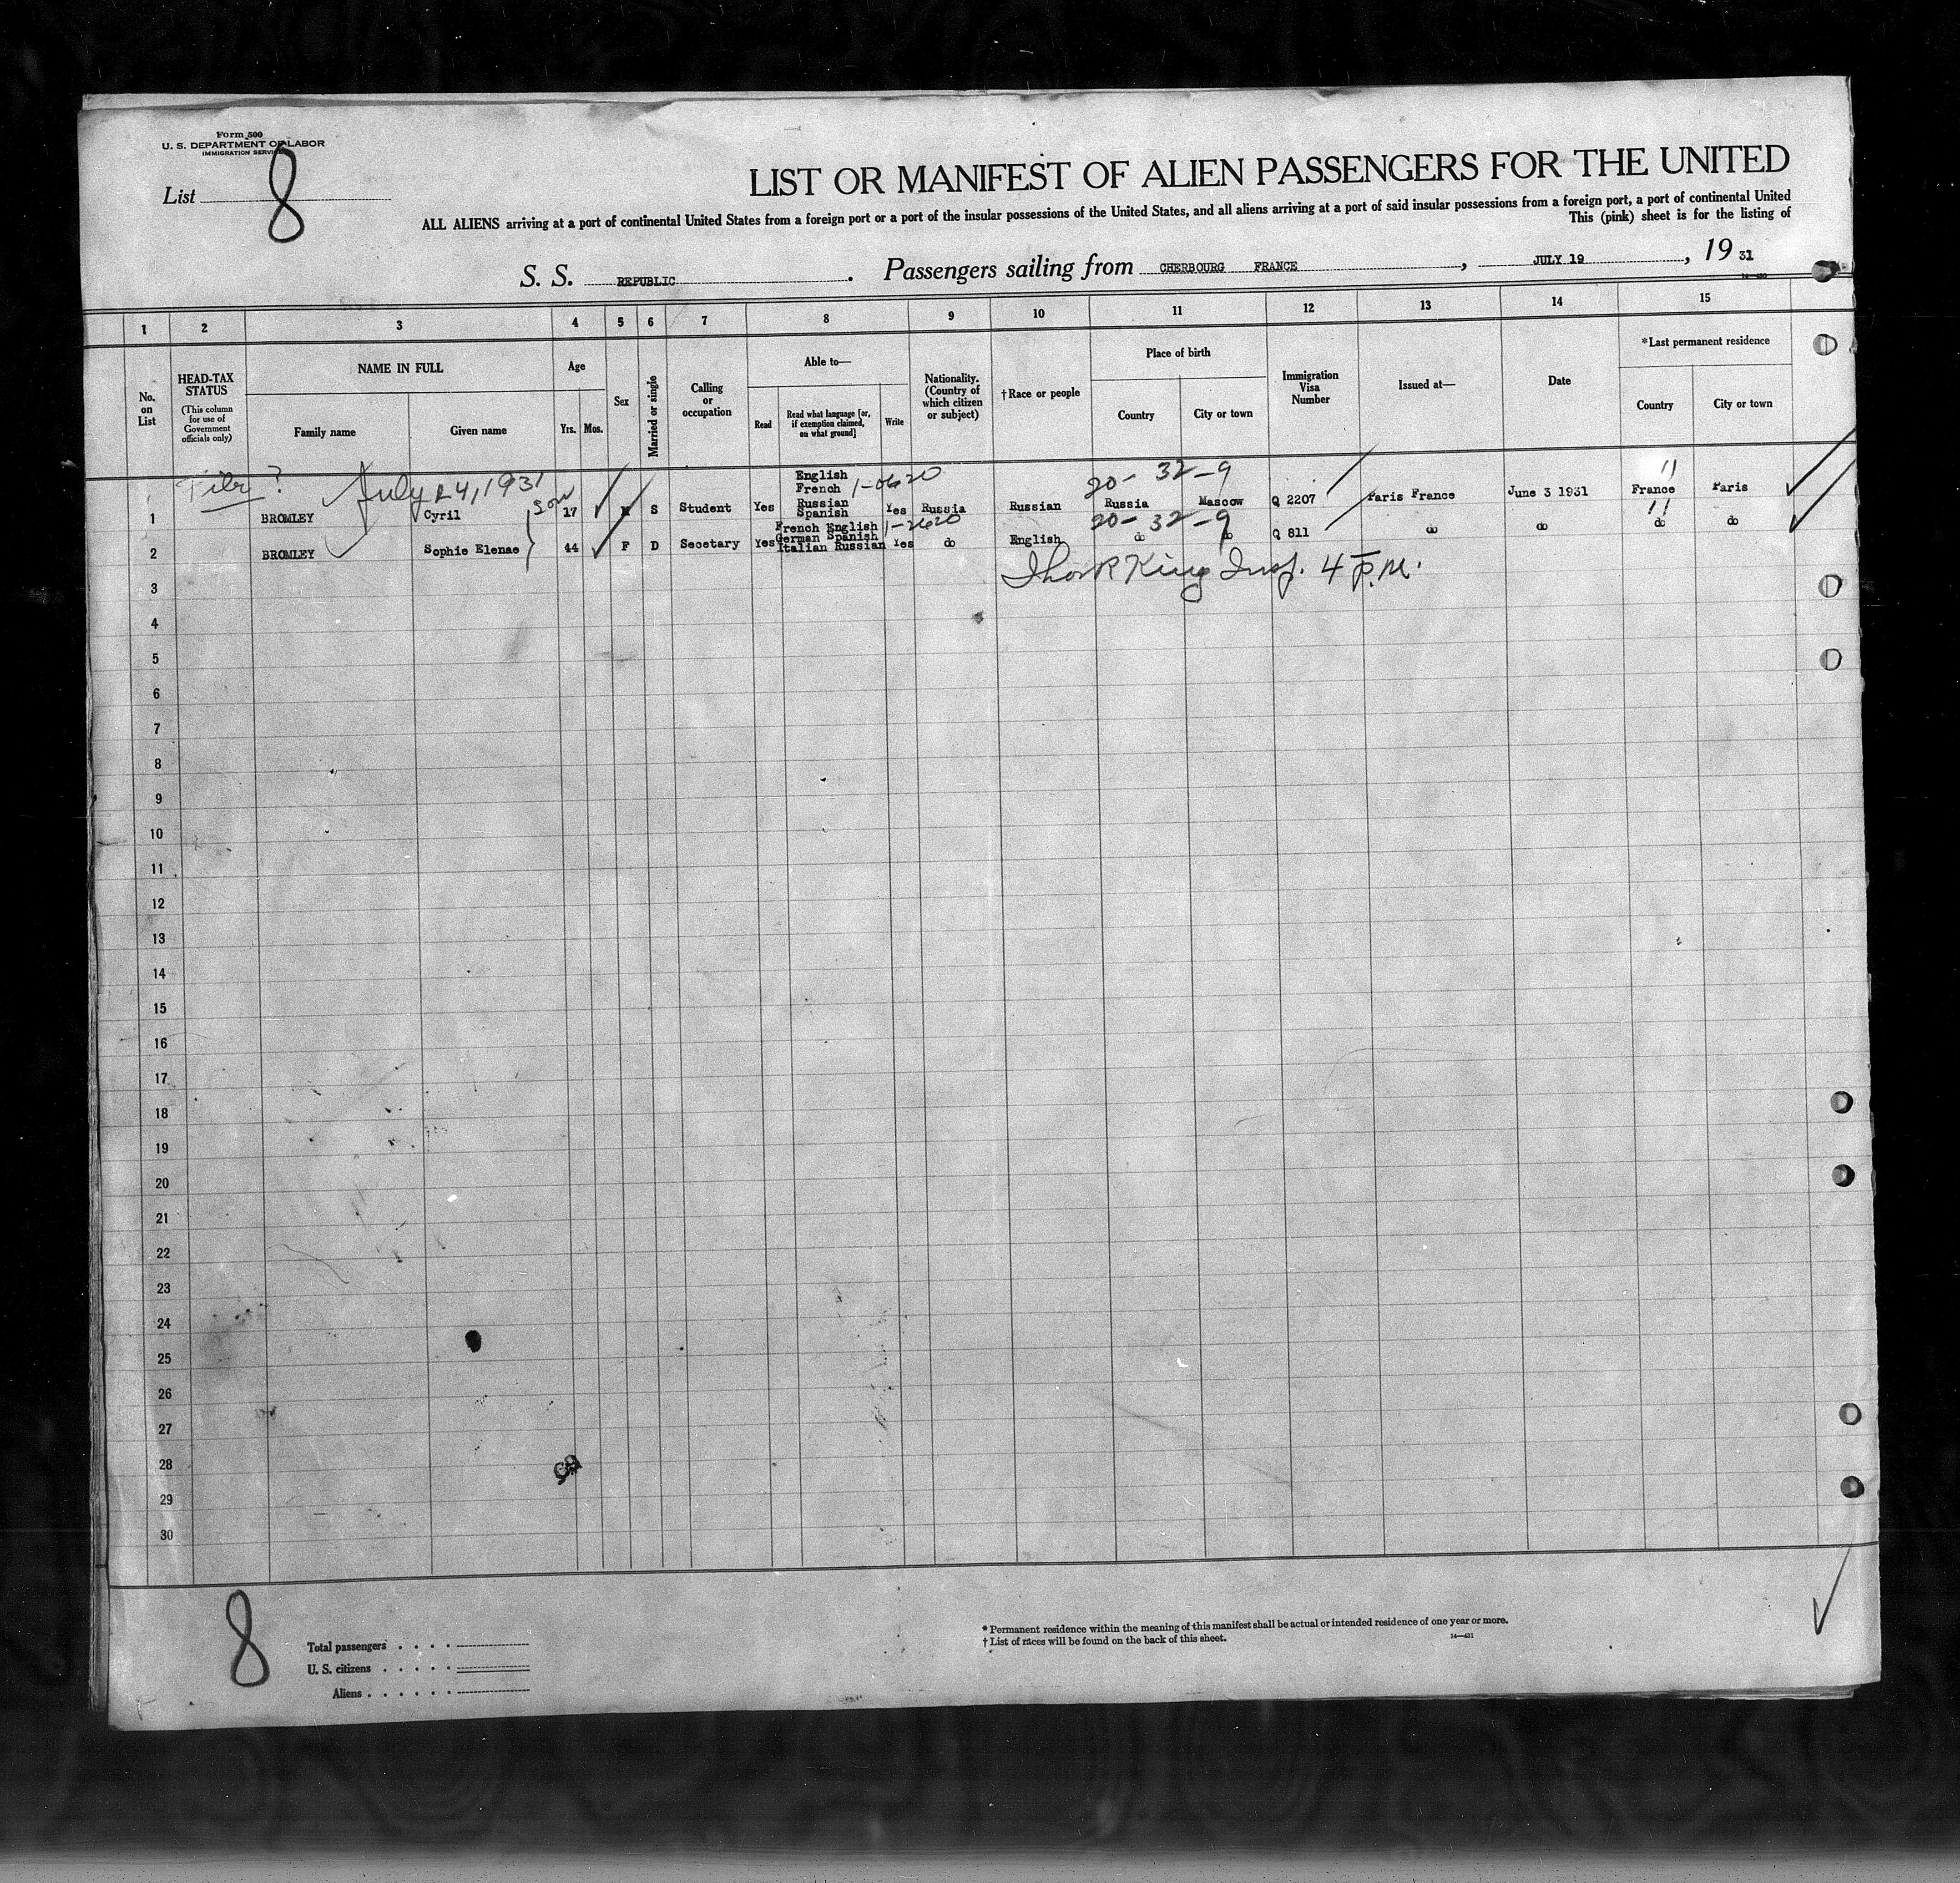 Form 500
U. S. DEPARTMENT OF LABOR
IMMIGRATION SERVICE
List 8
LIST OR MANIFEST OF ALIEN PASSENGERS FOR THE UNITED
ALL ALIENS arriving at a port of continental United States from a foreign port or a port of the insular possessions of the United States, and all aliens arriving at a port of said insular possessions from a foreign port, a port of continental United
This (pink) sheet is for the listing of
S. S. REPUBLIC. Passengers sailing from CHERBOURG FRANCE, JULY 19, 19 31
1 2 3 4 5 6 7 8 9 10 11 12 13 14 15
No. on List
HEAD-TAX STATUS
(This column for use of Government officials only)
NAME IN FULL
Family name
Given name
Age
Yrs.
Mos.
Sex
Married or single
Calling or occupation
Able to—
Read
Read what language [or, if exemption claimed, on what ground]
Write
Nationality. (Country of which citizen or subject)
†Race or people
Place of birth
Country
City or town
Immigration Visa Number
Issued at—
Date
*Last permanent residence
Country
City or town
July 24, 1931
20-32-9
1 BROMLEY Cyril son 17 M S Student Yes English French Russian Spanish Yes Russia Russian Russia Mascow Q 2207 Paris France June 3 1931 France Paris
20-32-9
2 BROMLEY Sophie Elenae 44 F D Secetary Yes French English German Spanish Italian Russian Yes do English do do Q 811 do do do do
King Insp. 4 P.M.
3
4
5
6
7
8
9
10
11
12
13
14
15
16
17
18
19
20
21
22
23
24
25
26
27
28
29
30
8
Total passengers
U. S. citizens
Aliens
* Permanent residence within the meaning of this manifest shall be actual or intended residence of one year or more.
† List of races will be found on the back of this sheet.
14—431